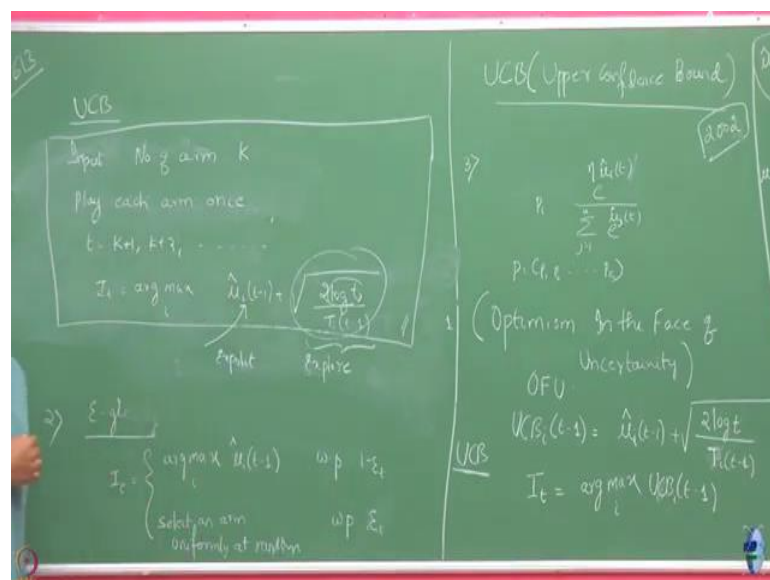 UCB
Input No of arm K
Play each arm once
t = K+1, K+2, .......
I_t = arg max_i μ̂_i(t-1) + √(2logt / T_i(t-1))
Exploit Explore
2) ε-g
I_t = { argmax_i μ̂_i(t-1) w.p 1-ε_t
select an arm uniformly at random w.p ε_t
UCB (Upper Confidence Bound)
2002
3)
P_i e^{η μ̂_i(t)} / Σ_j e^{μ̂_j(t)}
(Optimism In the Face of
Uncertainity)
OFU
UCB_i(t-1) = μ̂_i(t-1) + √(2logt / T_i(t-1))
UCB
I_t = argmax_i UCB_i(t-1)